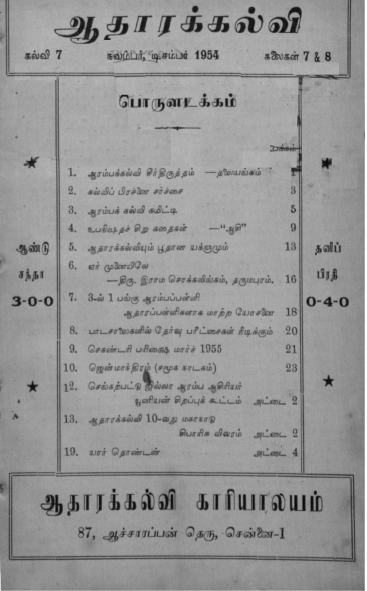 ஆதாரக்கல்வி
கல்வி 7 நவம்பர், டிசம்பர் 1954 கலைகள் 7 & 8
பொருளடக்கம்
பக்கம்
1. ஆரம்பக்கல்வி சீர்திருத்தம் —தலையங்கம் 1
2. கல்விப் பிரச்னை சர்ச்சை 3
3. ஆரம்பக் கல்வி கமிட்டி 5
4. உபநிஷதச் சிறு கதைகள் —“ஆதி” 9
5. ஆதாரக்கல்வியும் பூதான யக்ஞமும் 13
6. ஏர் முனையிலே
—திரு. இராம சொக்கலிங்கம், தருமபுரம். 16
7. 3-ல் 1 பங்கு ஆரம்பப்பள்ளி
ஆதாரப்பள்ளிகளாக மாற்ற யோசனை 18
8. பாடசாலைகளில் தேர்வு பரீட்சைகள் நீடிக்கும் 20
9. செகண்டரி பரிக்ஷை மார்ச் 1955 21
10. ஜென்மாக்திரம் (சமூக நாடகம்) 23
12. செங்கற்பட்டு ஜில்லா ஆரம்ப ஆசிரியர்
யூனியன் சிறப்புக் கூட்டம் அட்டை 2
13. ஆதாரக்கல்வி 10-வது மகாநாடு
விவரம் அட்டை 2
19. யார் தொண்டன் அட்டை 4
ஆண்டு
சந்தா
3-0-0
தனிப்
பிரதி
0-4-0
ஆதாரக்கல்வி காரியாலயம்
87, ஆச்சாரப்பன் தெரு, சென்னை-1